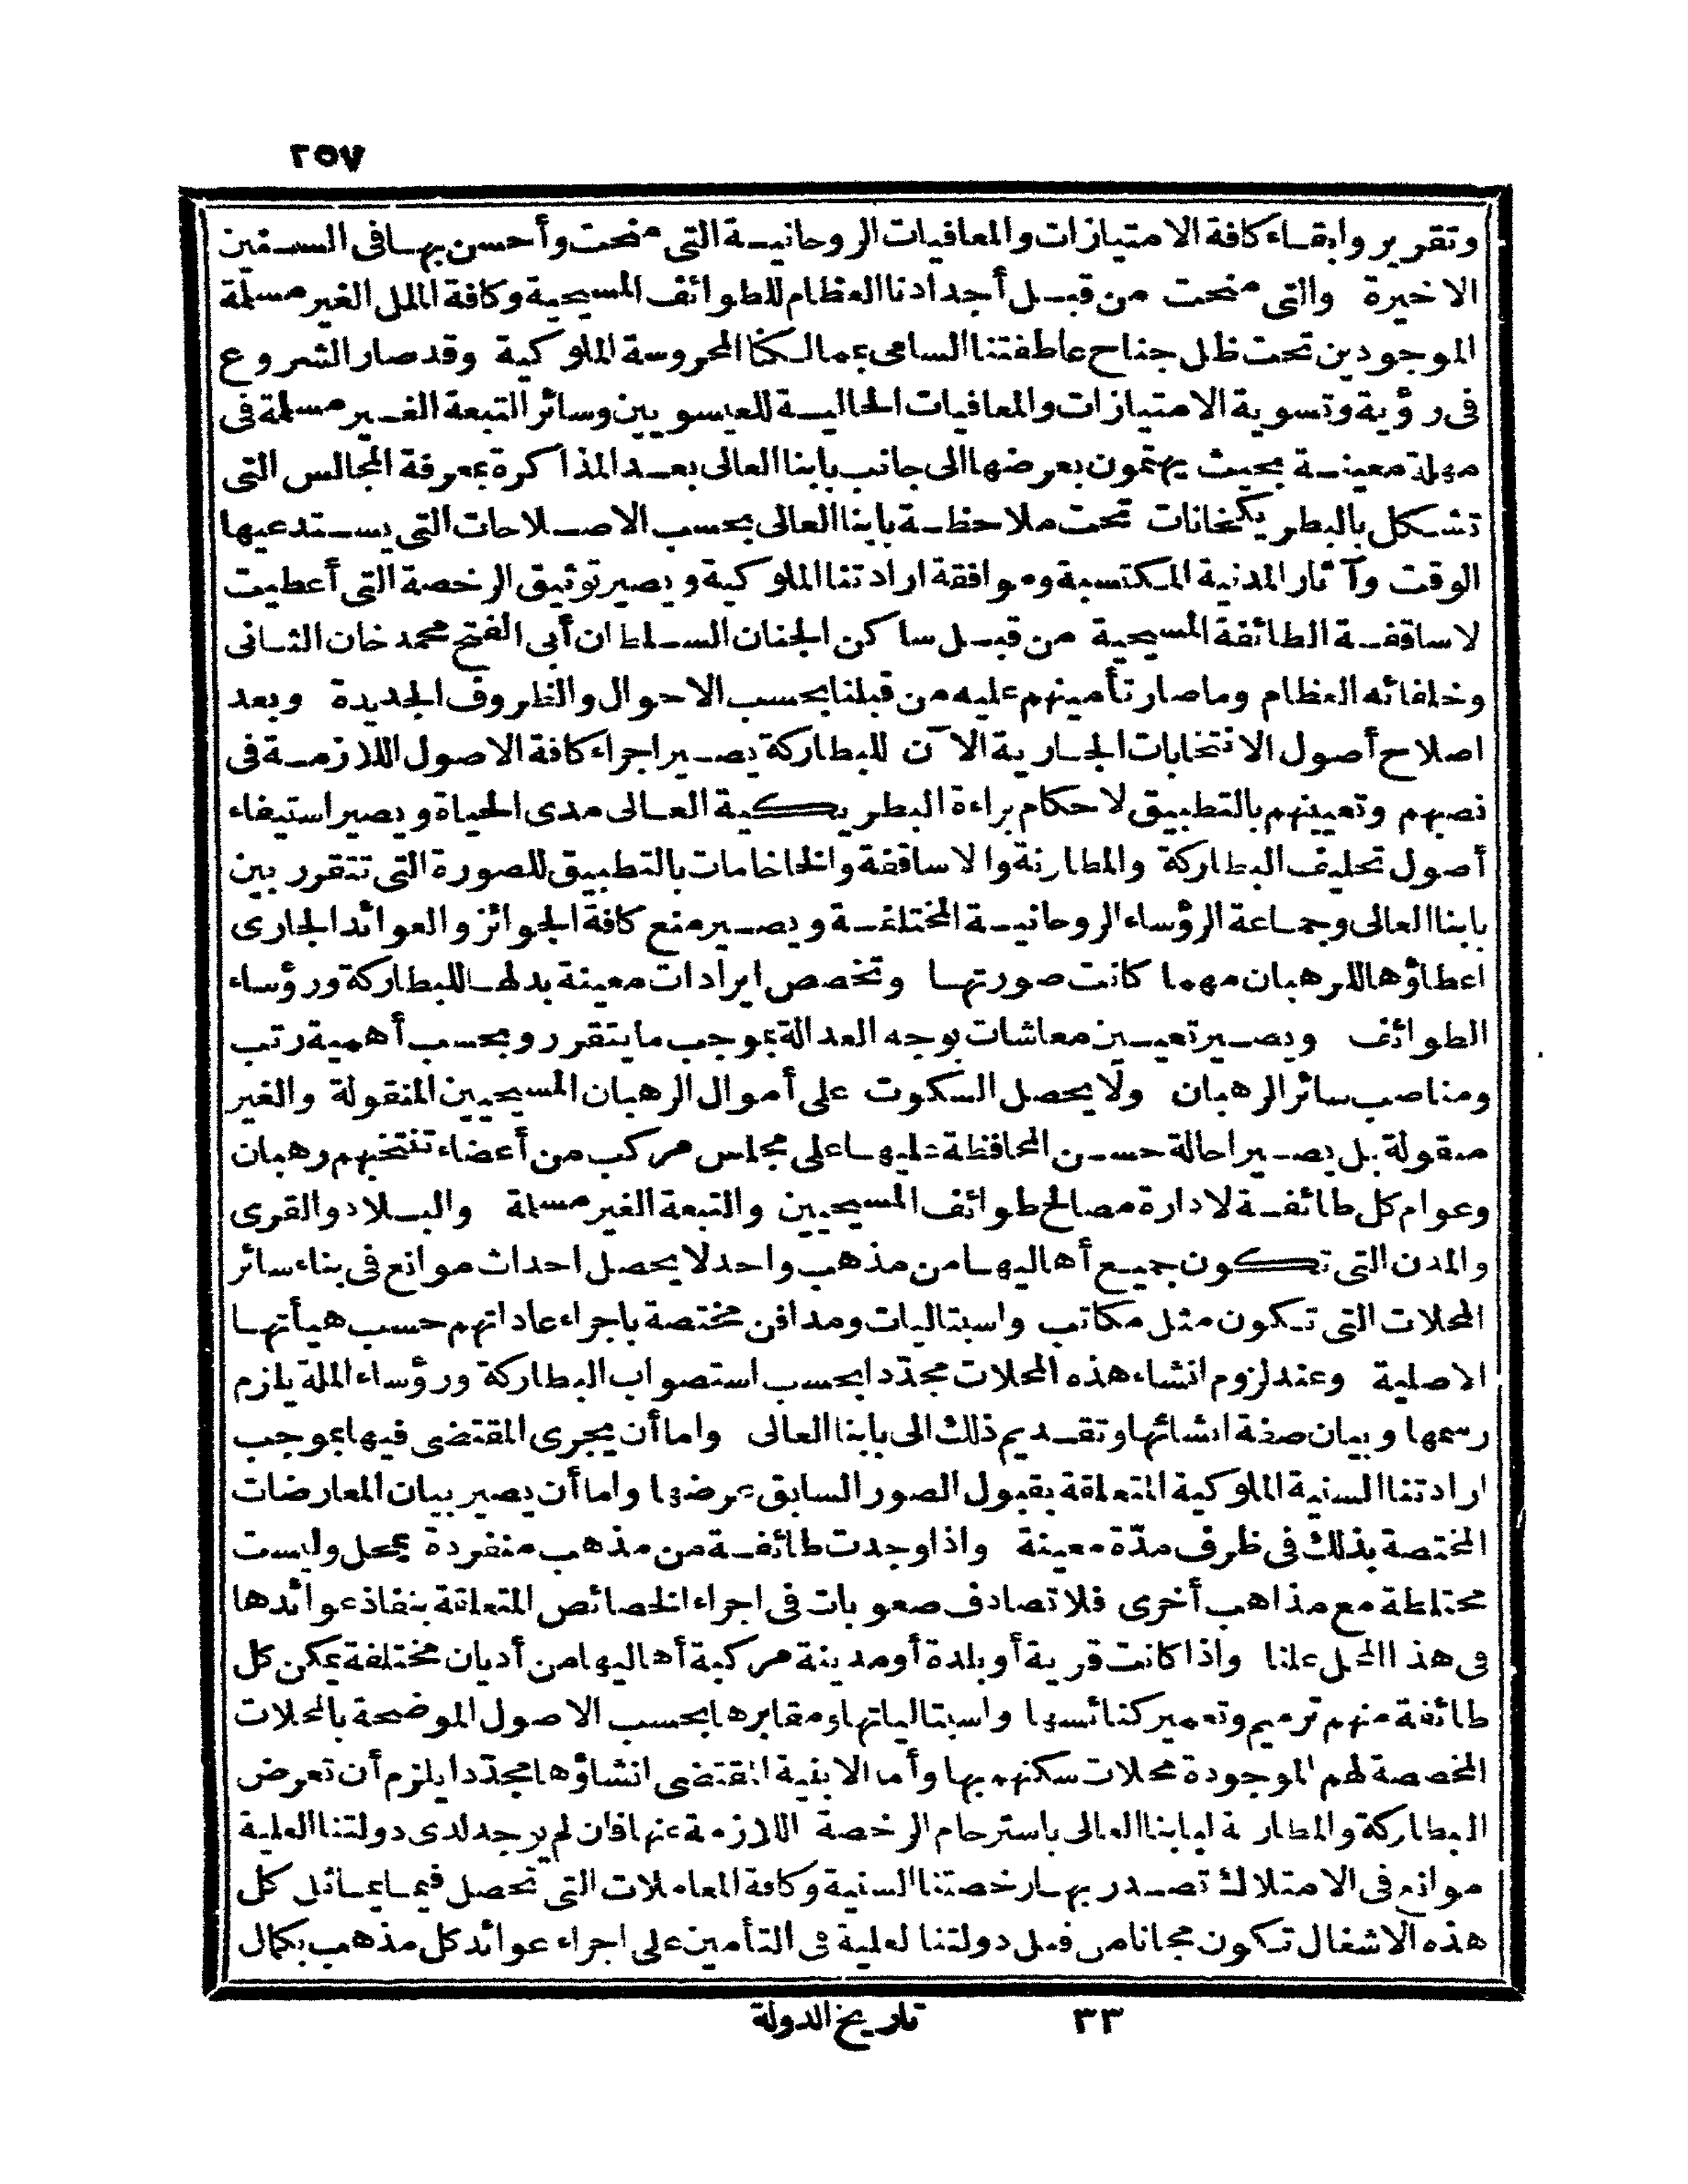 ٢٥٧
وتقرير وابقاء كافة الامتيازات والمعافيات الروحانية التى منحت وأحسن بها فى السنين
الاخيرة والتى منحت من قبل أجدادنا العظام للطوائف المسيحية وكافة الملل الغير مسلمة
الموجودين تحت ظل جناح عاطفتنا السامى بممالكنا المحروسة الملوكية وقد صار الشروع
فى رؤية وتسوية الامتيازات والمعافيات الحالية للعيسويين وسائر التبعة الغير مسلمة فى
مهلة معينة بحيث يهتمون بعرضها الى جانب بابنا العالى بعد المذاكرة بمعرفة المجالس التى
تشكل بالبطريكخانات تحت ملاحظة بابنا العالى بحسب الاصلاحات التى يستدعيها
الوقت وآثار المدنية المكتسبة وموافقة ارادتنا الملوكية ويصير توثيق الرخصة التى أعطيت
لاساقفة الطائفة المسيحية من قبل ساكن الجنان السلطان أبى الفتح محمد خان الثانى
وخلفائه العظام وما صار تأمينهم عليه من قبلنا بحسب الاحوال والظروف الجديدة وبعد
اصلاح أصول الانتخابات الجارية الآن للبطاركة يصير اجراء كافة الاصول اللازمة فى
نصبهم وتعيينهم بالتطبيق لاحكام براءة البطريكية العالى مدى الحياة ويصير استيفاء
أصول تحليف البطاركة والمطارنة والاساقفة والخاخامات بالتطبيق للصورة التى تتقرر بين
بابنا العالى وجماعة الرؤساء الروحانية المختلفة ويصير منع كافة الجوائز والعوائد الجارى
اعطاؤها للرهبان مهما كانت صورتها وتخصص ايرادات معينة بدلها للبطاركة ورؤساء
الطوائف ويصير تعيين معاشات بوجه العدالة بموجب ما يتقرر وبحسب أهمية رتب
ومناصب سائر الرهبان ولا يحصل السكوت على أموال الرهبان المسيحيين المنقولة والغير
منقولة بل يصير احالة حسن المحافظة عليها على مجلس مركب من أعضاء تنتخبهم رهبان
وعوام كل طائفة لادارة مصالح طوائف المسيحيين والتبعة الغير مسلمة والبلاد والقرى
والمدن التى تكون جميع أهاليها من مذهب واحد لا يحصل احداث موانع فى بناء سائر
المحلات التى تكون مثل مكاتب واسبتاليات ومدافن مختصة باجراء عاداتهم حسب هيأتها
الاصلية وعند لزوم انشاء هذه المحلات مجدّدا بحسب استصواب البطاركة ورؤساء الملة يلزم
رسمها وبيان صفة انشائها وتقديم ذلك الى بابنا العالى واما أن يجرى المقتضى فيها بموجب
ارادتنا السنية الملوكية المتعلقة بقبول الصور السابق عرضها واما أن يصير بيان المعارضات
المختصة بذلك فى ظرف مدّة معينة واذا وجدت طائفة من مذهب منفردة بمحل وليست
مختلطة مع مذاهب أخرى فلا تصادف صعوبات فى اجراء الخصائص المتعلقة بنفاذ عوائدها
فى هذا المحل علنا واذا كانت قرية أو بلدة أو مدينة مركبة أهاليها من أديان مختلفة يمكن كل
طائفة منهم ترميم وتعمير كنائسها واسبتالياتها ومقابرها بحسب الاصول الموضحة بالمحلات
المخصصة لهم الموجودة محلات سكنهم بها وأما الابنية المقتضى انشاؤها مجدّدا يلزم أن تعرض
البطاركة والمطارنة لبابنا العالى باسترحام الرخصة اللازمة عنها فان لم يوجد لدى دولتنا العلية
موانع فى الامتلاك تصدر بها رخصتنا السنية وكافة المعاملات التى تحصل فيما يماثل كل
هذه الاشغال تكون مجانا من قبل دولتنا العلية فى التأمين على اجراء عوائد كل مذهب بكمال
٣٣ تاريخ الدولة